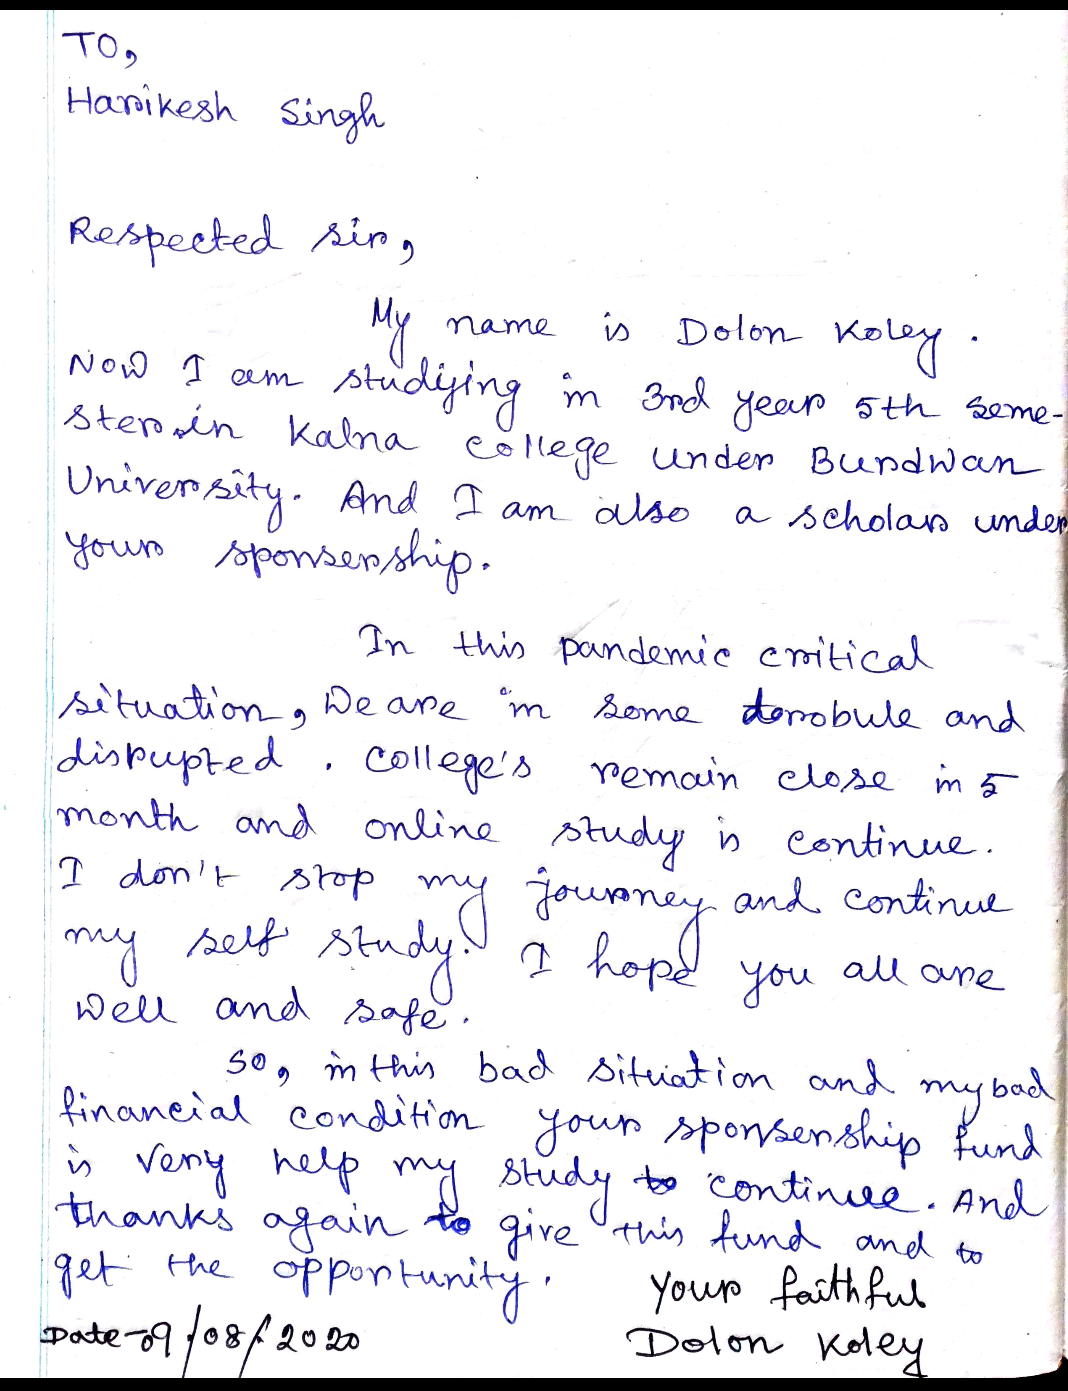 TO,
Harikesh Singh
Respected sir,
My name is Dolon Koley.
Now I am studying in 3rd year 5th seme-
ster in Kalna college under Burdwan
University. And I am also a scholar under
your sponsership.
In this pandemic critical
situation, We are in some torobule and
disrupted. College's remain close in 5
month and online study is continue.
I don't stop my journey and continue
my self study. I hope you all are
well and safe.
So, in this bad situation and my bad
financial condition your sponsership fund
is very help my study to continue. And
thanks again to give this fund and to
get the opportunity.
Your faithful
Date-09/08/2020 Dolon Koley